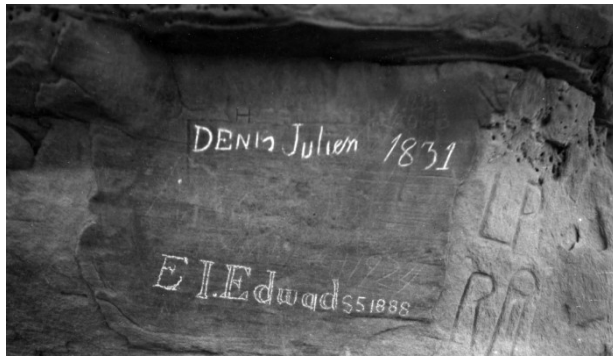 DENIS Julien 1831
E I.Edwads 51888